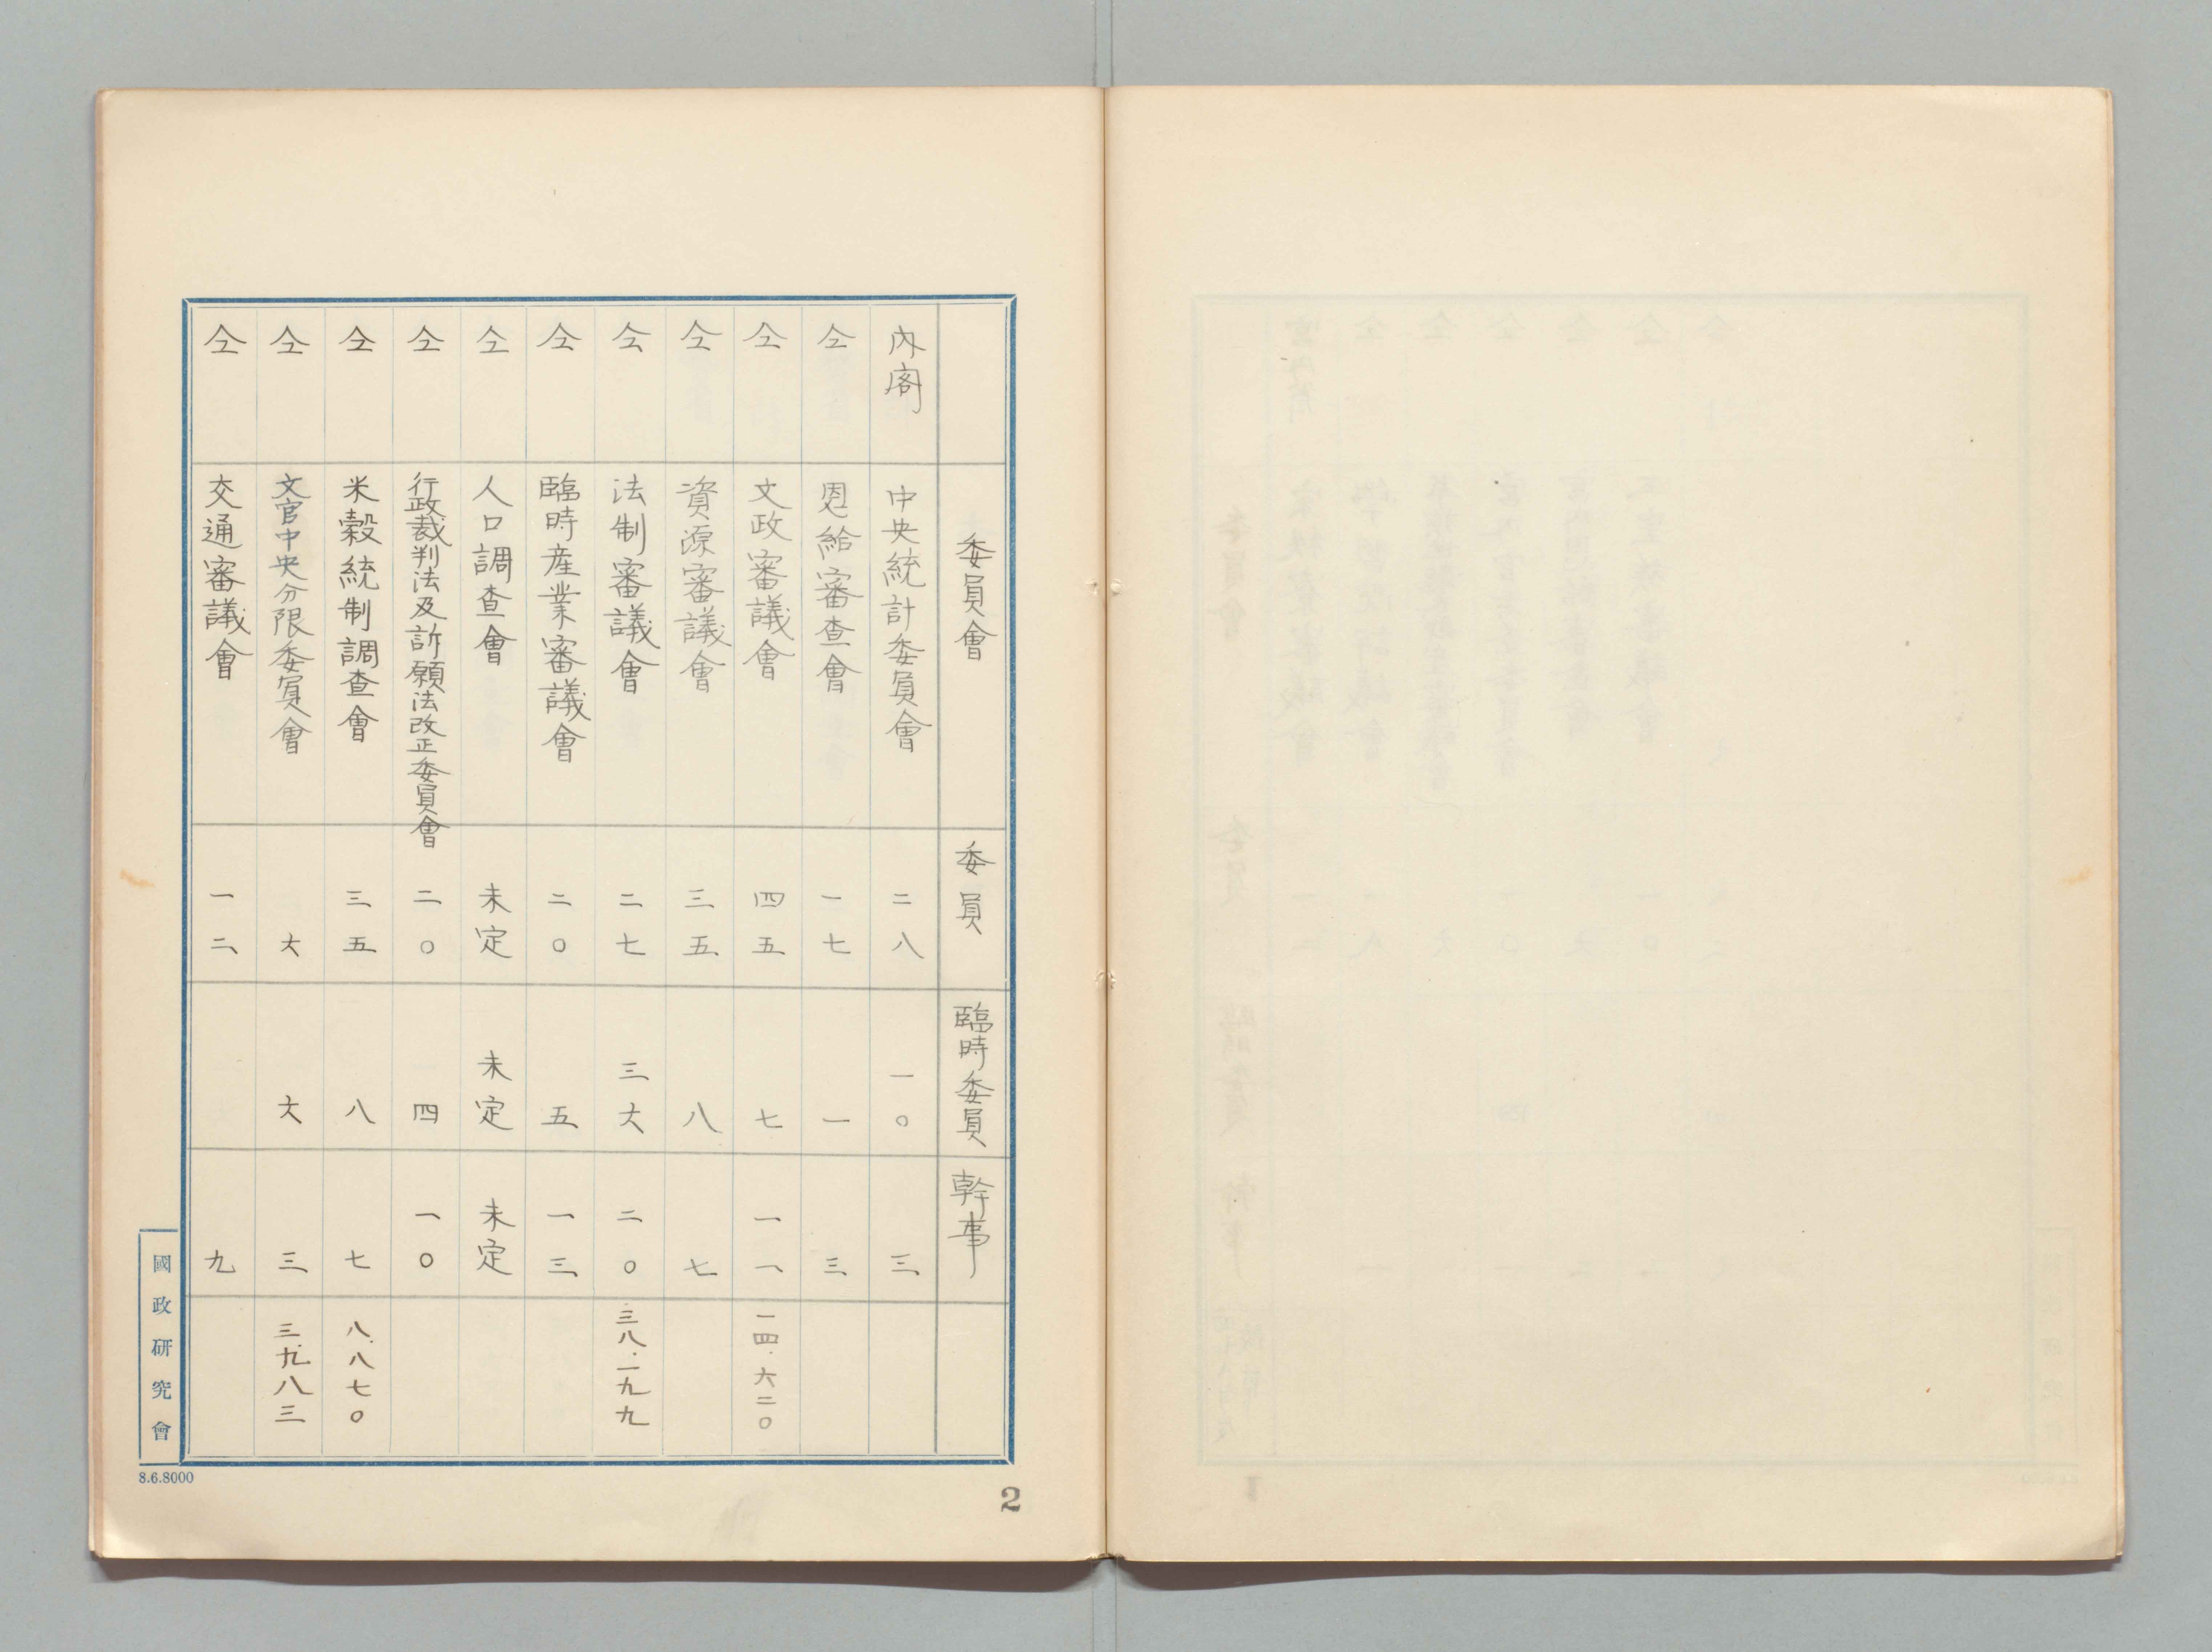 委員會 委員 臨時委員 幹事
內閣 中央統計委員會 二八 一〇 三
仝 恩給審査會 一七 一 三
仝 文政審議會 四五 七 一一 一四.六二〇
仝 資源審議會 三五 八 七
仝 法制審議會 二七 三六 二〇 三八.一九九
仝 臨時産業審議會 二〇 五 一三
仝 人口調査會 未定 未定 未定
仝 行政裁判法及訴願法改正委員會 二〇 四 一〇
仝 米穀統制調査會 三五 八 七 八.八七〇
仝 文官中央分限委員會 六 六 三 三.九八三
仝 交通審議會 一二 九
國政研究會
8.6.8000
2